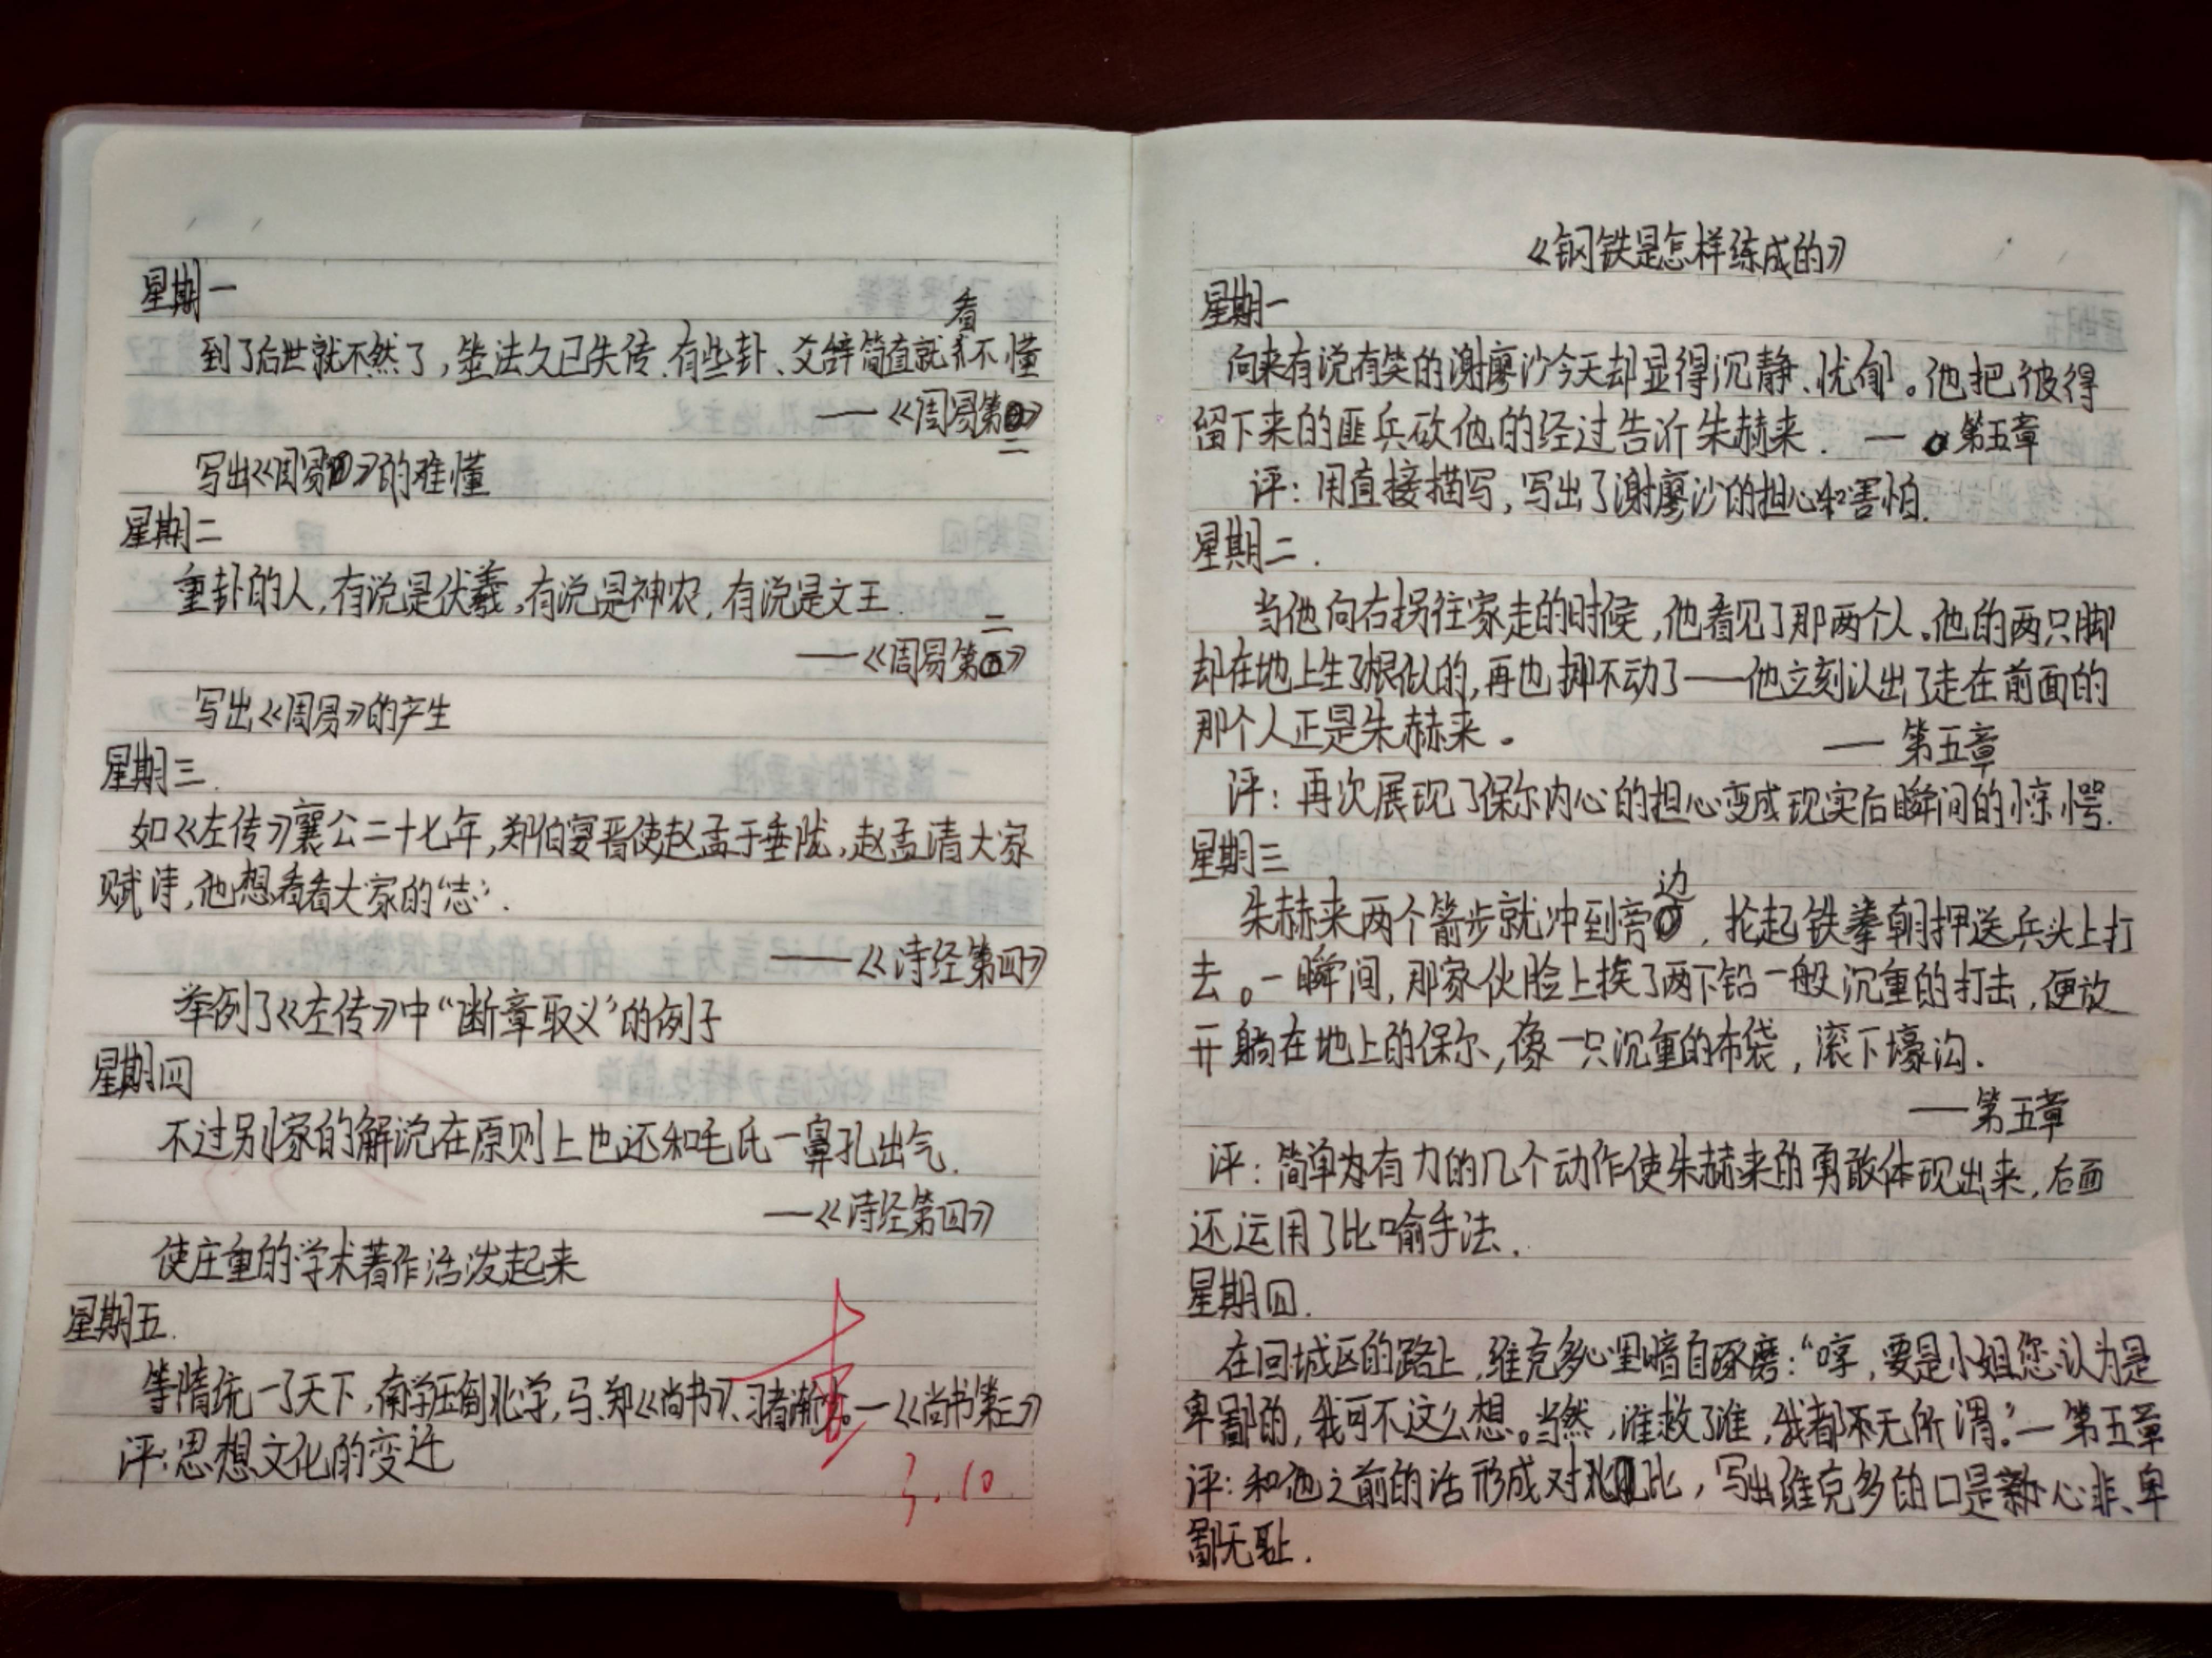 星期一
看
到了后世就不然了,筮法久已失传,有些卦、爻辞简直就不懂
——《周易第二》
写出《周易》的难懂
星期二
重卦的人,有说是伏羲,有说是神农,有说是文王.
——《周易第二》
写出《周易》的产生
星期三.
如《左传》襄公二十七年,郑伯宴晋使赵孟于垂陇,赵孟请大家
赋诗,他想看看大家的“志”.
——《诗经第四》
举例了《左传》中“断章取义”的例子
星期四
不过别家的解说在原则上也还和毛氏一鼻孔出气.
——《诗经第四》
使庄重的学术著作活泼起来
星期五.
等隋统一了天下,南学压倒北学,马、郑《尚书》,习者渐。—《尚书第三》
评:思想文化的变迁
3.10
《钢铁是怎样练成的》
星期一
向来有说有笑的谢廖沙今天却显得沉静、忧郁。他把彼得
留下来的匪兵砍他的经过告诉朱赫来. — 第五章
评:用直接描写,写出了谢廖沙的担心和害怕.
星期二.
当他向右拐往家走的时候,他看见了那两个人。他的两只脚
却在地上生了根似的,再也挪不动了——他立刻认出了走在前面的
那个人正是朱赫来。 —— 第五章
评:再次展现了保尔内心的担心变成现实后瞬间的惊愕.
星期三
朱赫来两个箭步就冲到旁边,抡起铁拳朝押送兵头上打
去。一瞬间,那家伙脸上挨了两下铅一般沉重的打击,便放
开躺在地上的保尔,像一只沉重的布袋,滚下壕沟.
——第五章
评:简单为有力的几个动作使朱赫来的勇敢体现出来,后面
还运用了比喻手法.
星期四.
在回城区的路上,维克多心里暗自琢磨:“哼,要是小姐您认为是
卑鄙的,我可不这么想。当然,谁救了谁,我都无所谓.”—第五章
评:和他之前的话形成对比,写出维克多的口是心非、卑
鄙无耻.